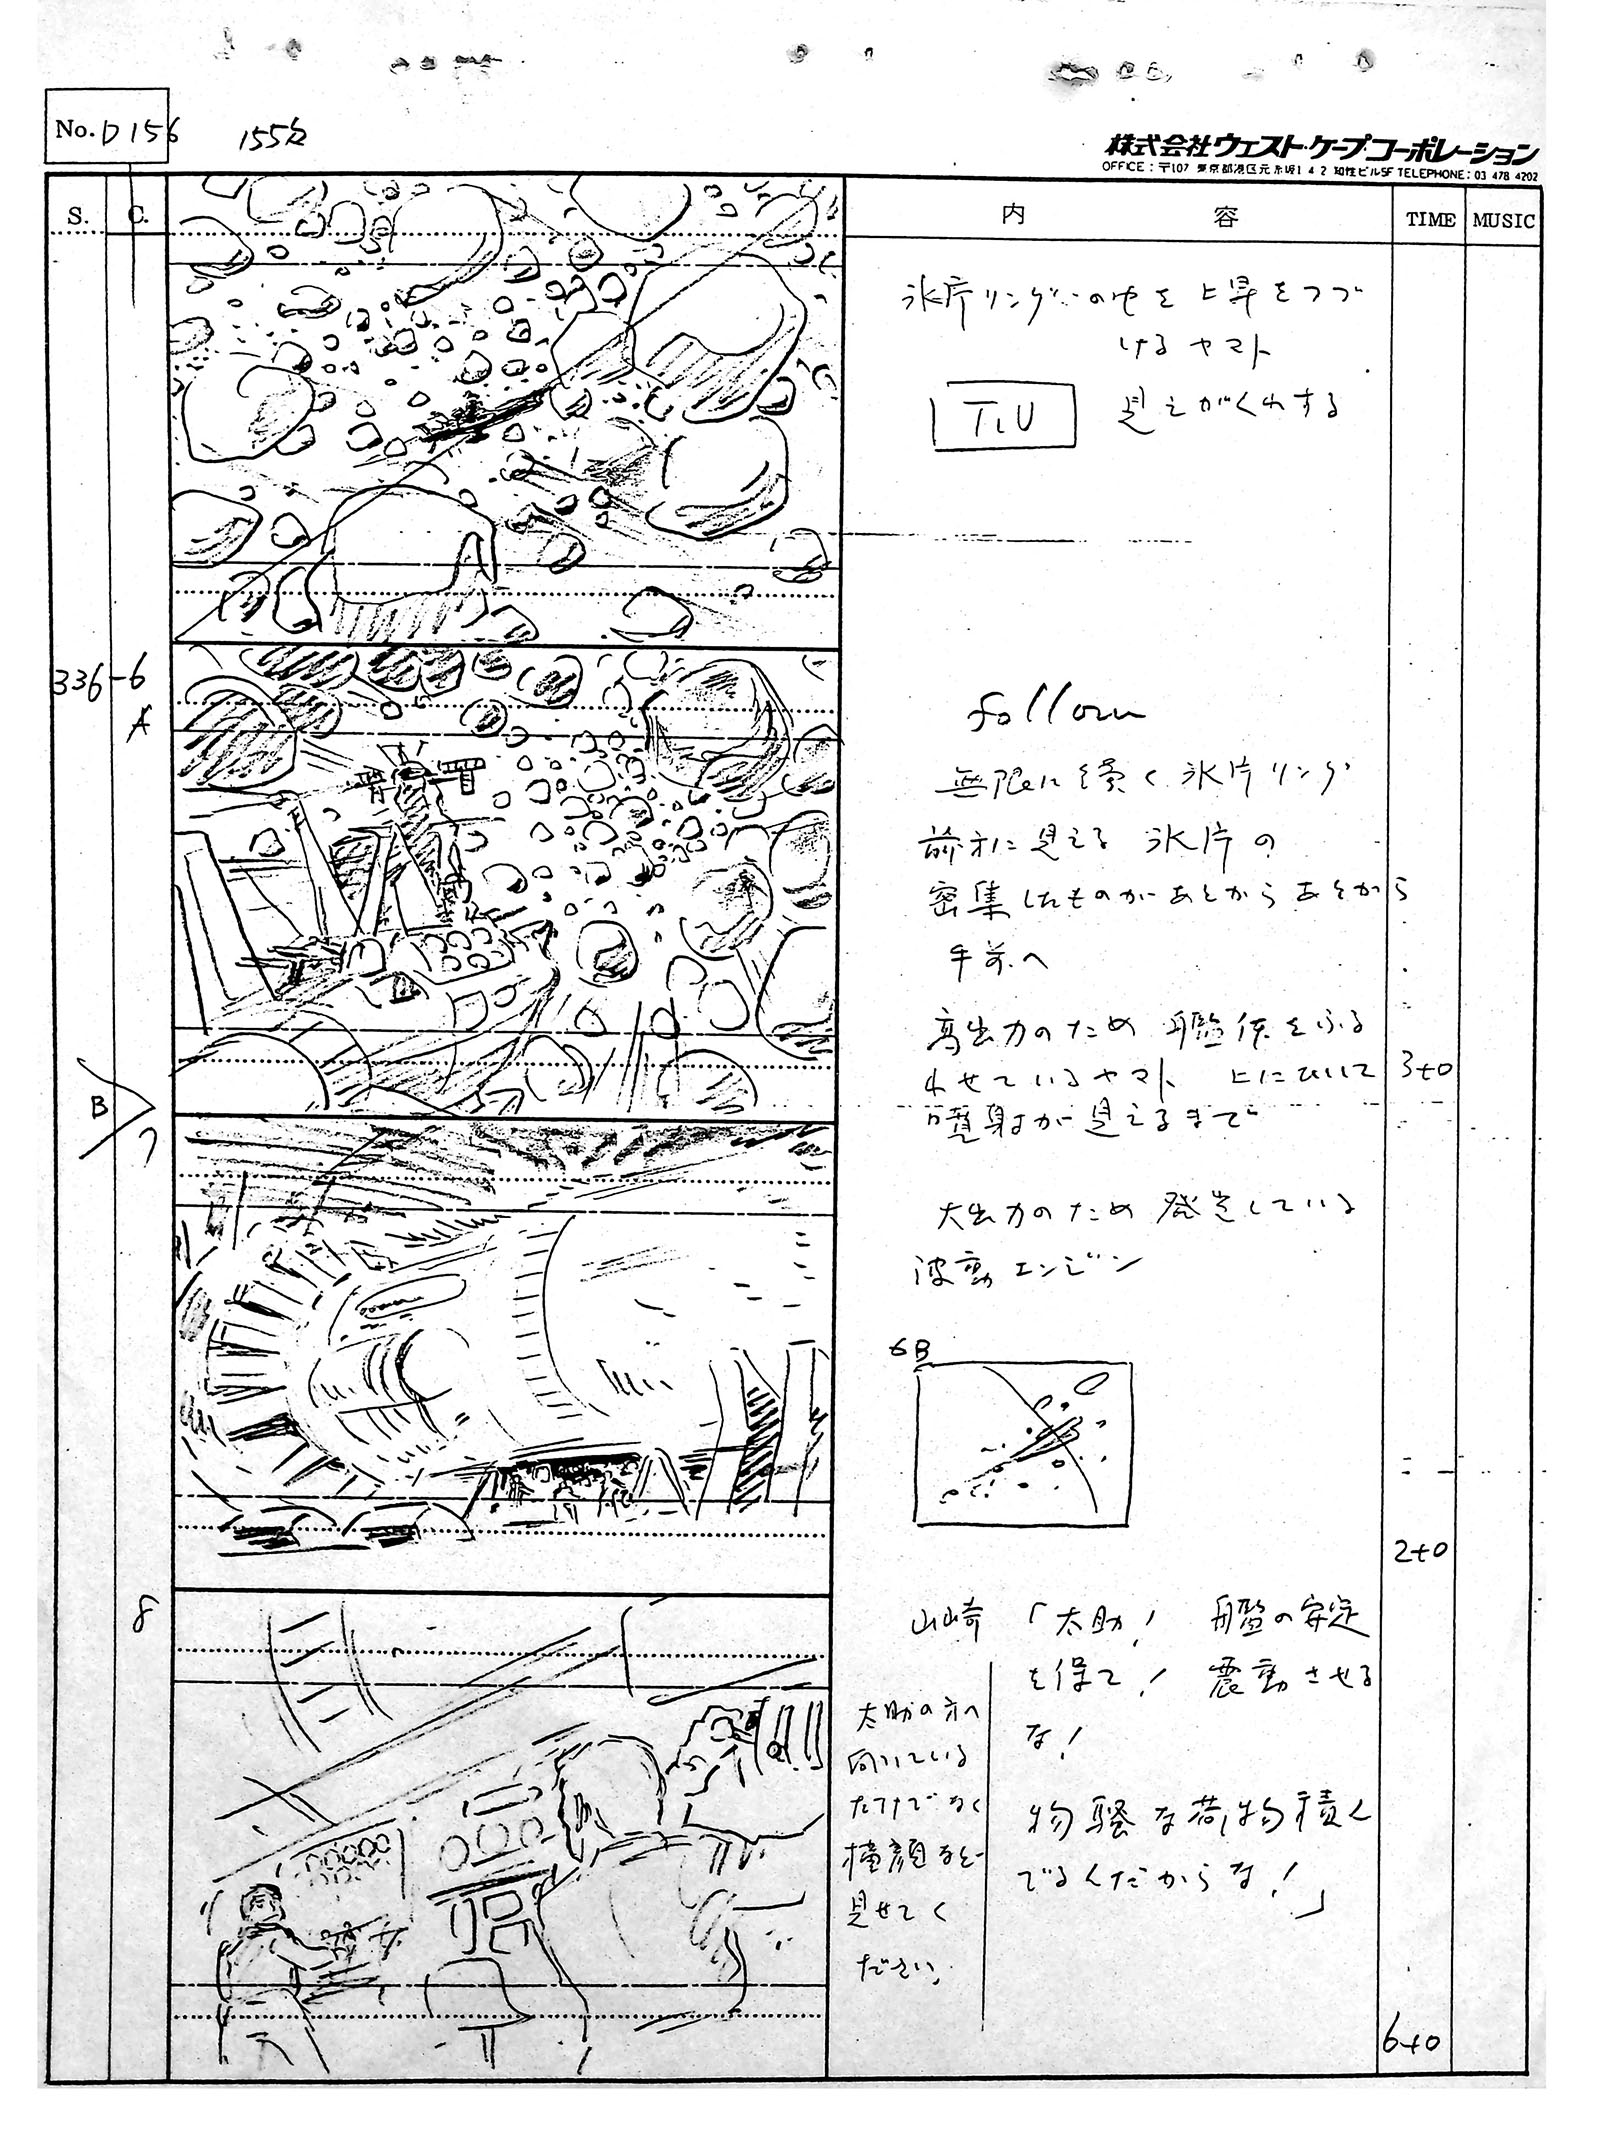 No. D156 155欠
株式会社ウェスト・ケープ・コーポレーション
OFFICE：〒107 東京都港区元赤坂1 4 2 知性ビル5F TELEPHONE：03 478 4202
S. C. 内 容 TIME MUSIC
氷片リングの中を上昇をつづ
けるヤマト
T.U 見えがくれする
336 -6
A
follow
無限に続く氷片リング
前方に見える氷片の
密集したものがあとからあとから
手前へ
高出力のため 艦体をふる
わせているヤマト 上にひいて 3+0
噴射が見えるまで
B
7
大出力のため発光している
波動エンジン
6B
2+0
8
山崎「太助！ 艦の安定
を保て！ 震動させる
な！
物騒な荷物積ん
でるんだからな！」
太助の方へ
向いている
だけでなく
横顔なども
見せてく
ださい。
6+0